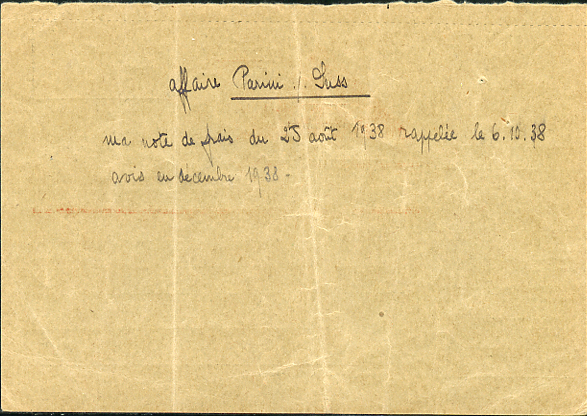 affaire Parini / Suss
ma note de frais du 25 août 1938 rappelée le 6.10.38
avis en décembre 1938 -